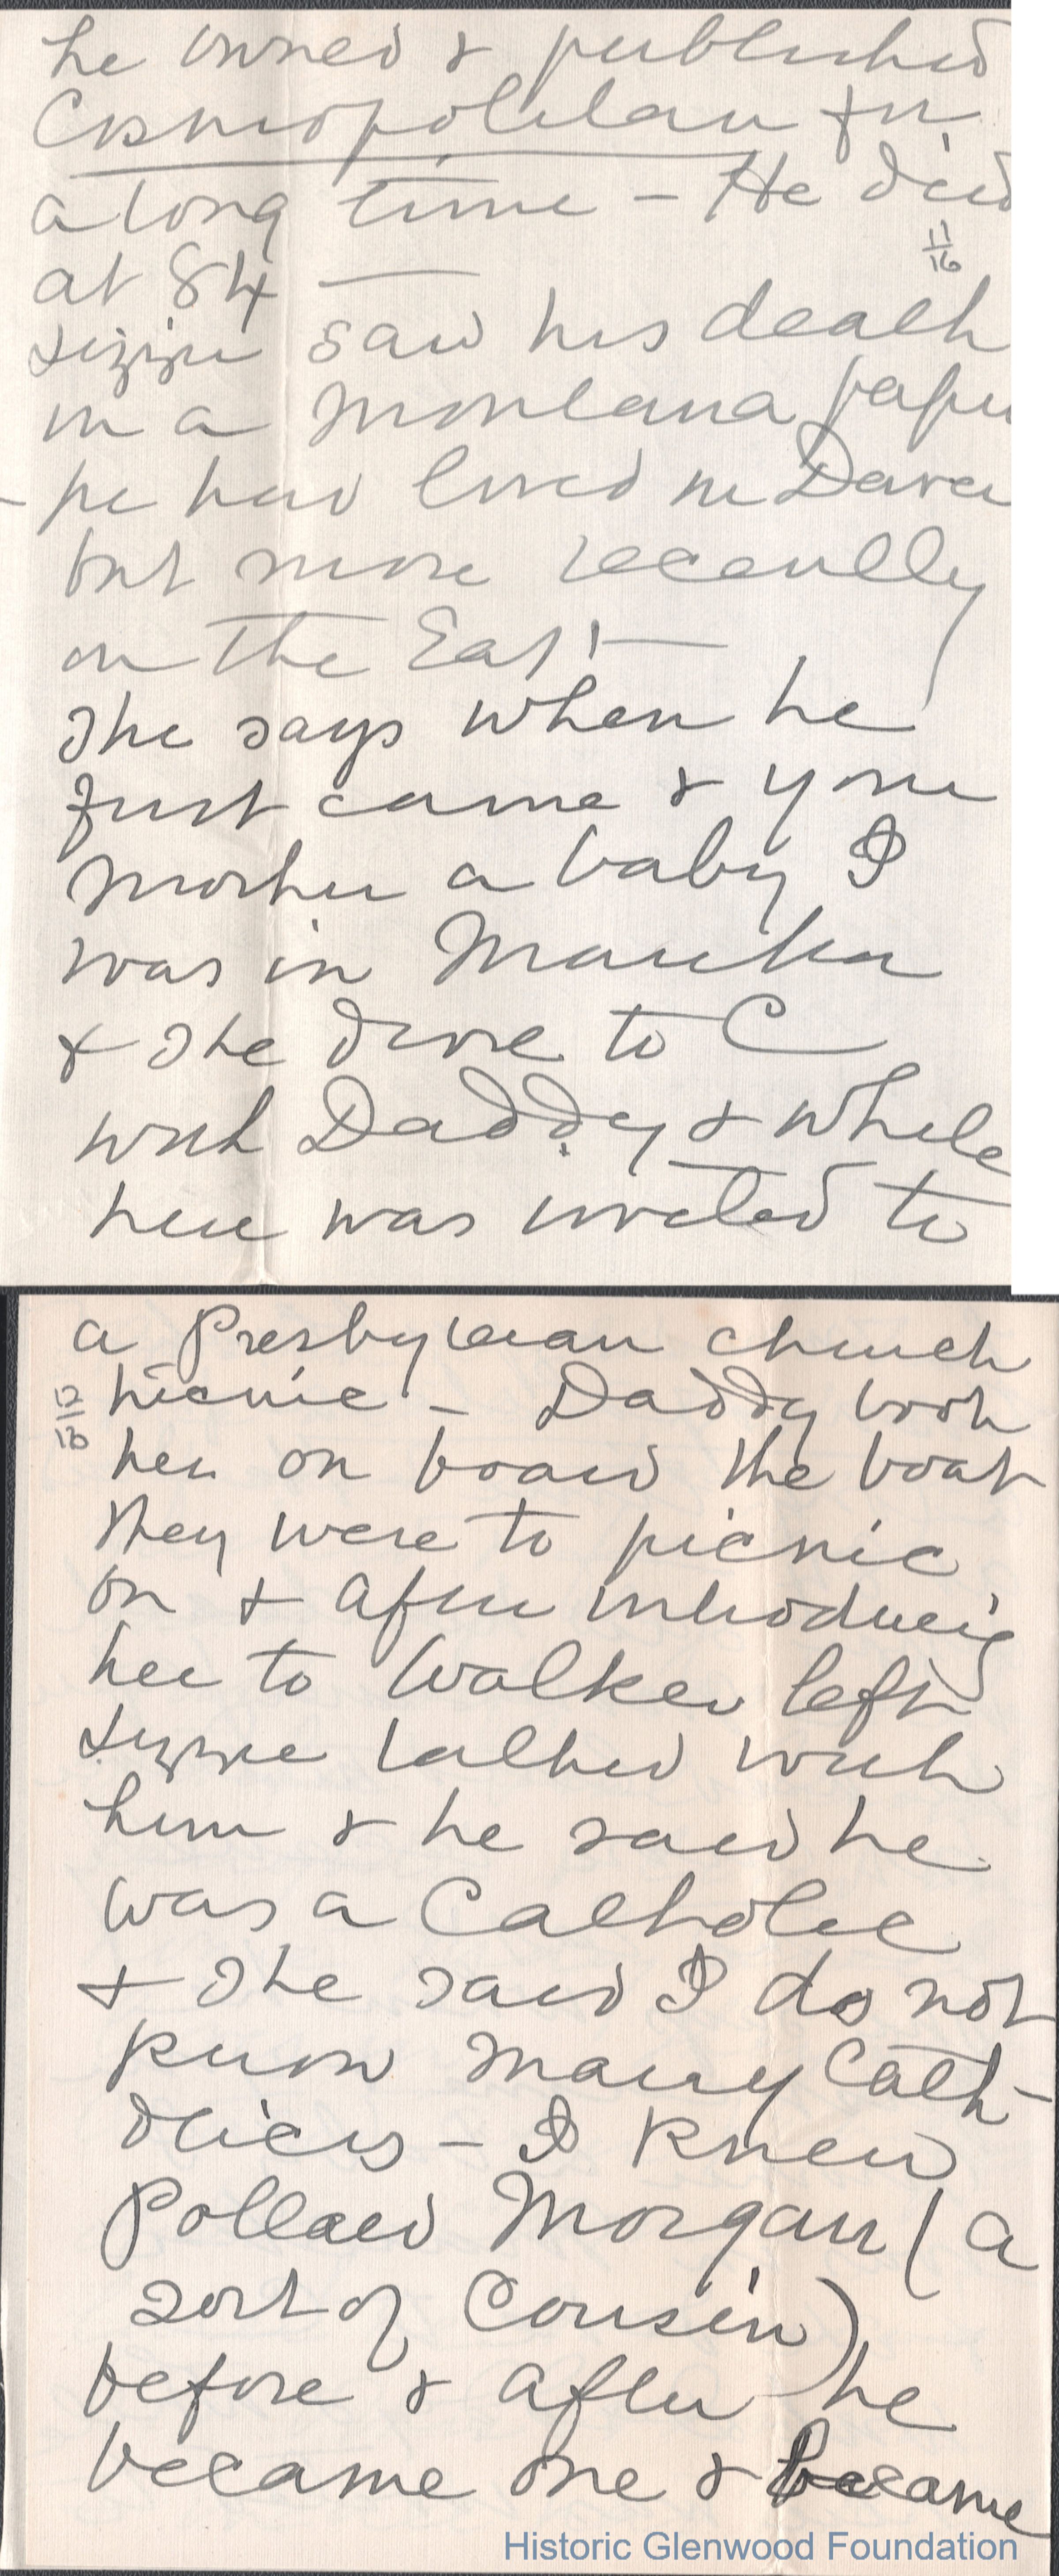 he owned & published
Cosmopolitan for
a long time – He died
11/16
at 84 —
Lizzie saw his death
in a Montana paper
- he had lived in Denver
but more recently
in the East —
She says when he
first came & your
mother a baby I
was in Manitou
& she drove to C
with Daddy & while
here was invited to
a Presbyterian church
12/16
picnic – Daddy took
her on board the boat
they were to picnic
on & after introducing
her to Walker left
Lizzie talked with
him & he said he
was a Catholic
& she said I do not
know many Cath-
olics – I knew
Pollard Morgan (a
sort of Cousin)
before & after he
became one & became
Historic Glenwood Foundation